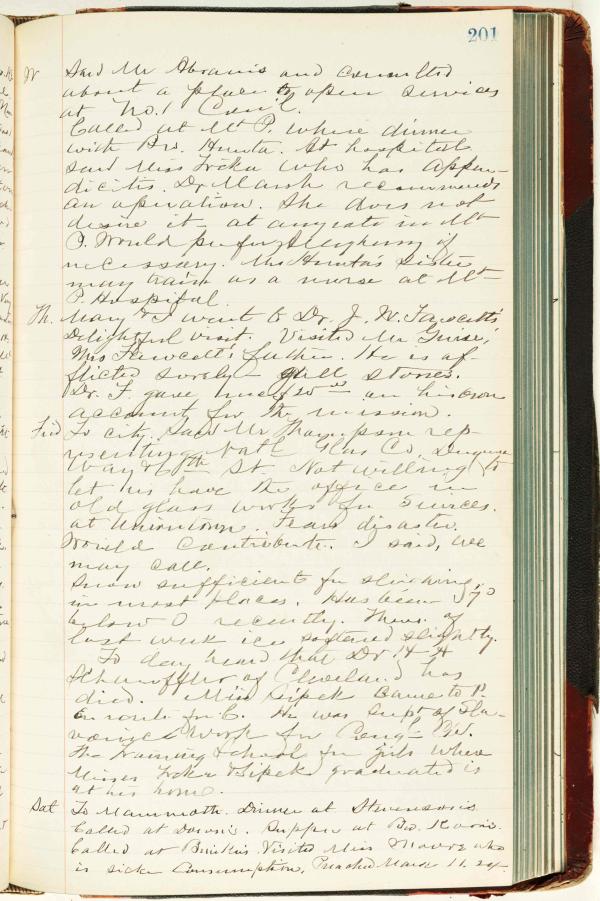 201
W Said Mr Abrams and consulted
about a place to open services
at No. 1 Con'l.
Called at Mt P. where dinner
with Bro. Hunta. At hospital
said Miss Focka who has appen-
dicitis. Dr. Marsh recommends
an operation. She does not
desire it - at any rate in Mt
P. Would prefer Allegheny if
necessary. Mrs Hunta's sister
may train as a nurse at Mt
P. Hospital.
Th. Mary & I went to Dr. J. W. Fawcett's
Delightful visit. Visited Mr Guise,
Mrs Fawcett's father. He is af-
flicted sorely - gall stones.
Dr. F. gave me $25 on his own
account for the mission.
Frid To city. Said Mr Thompson rep-
resenting Natl Glass Co. Duquesne
Way & 6th St. Not willing to
let us have the office in
old glass works for services.
at Uniontown. Fears disaster.
Would contribute. I said, we
may call.
Snow sufficient for sleighing
in most places. Has been 7°
below 0 recently. Thurs. of
last week ice softened slightly.
To day heard that Dr. H A
Schauffler of Cleveland has
died. Miss Sipek came to P.
en route for C. He was Supt of Sla-
vonic Work for Cong'l Ch.
The training school for girls where
Misses Focka & Sipek graduated is
at his home.
Sat To Mammoth. Dinner at Stevenson's
Called at . Supper at Bro. .
Called at . Visited Miss Moore who
is sick Consumption. Preached Mark 11. 24.